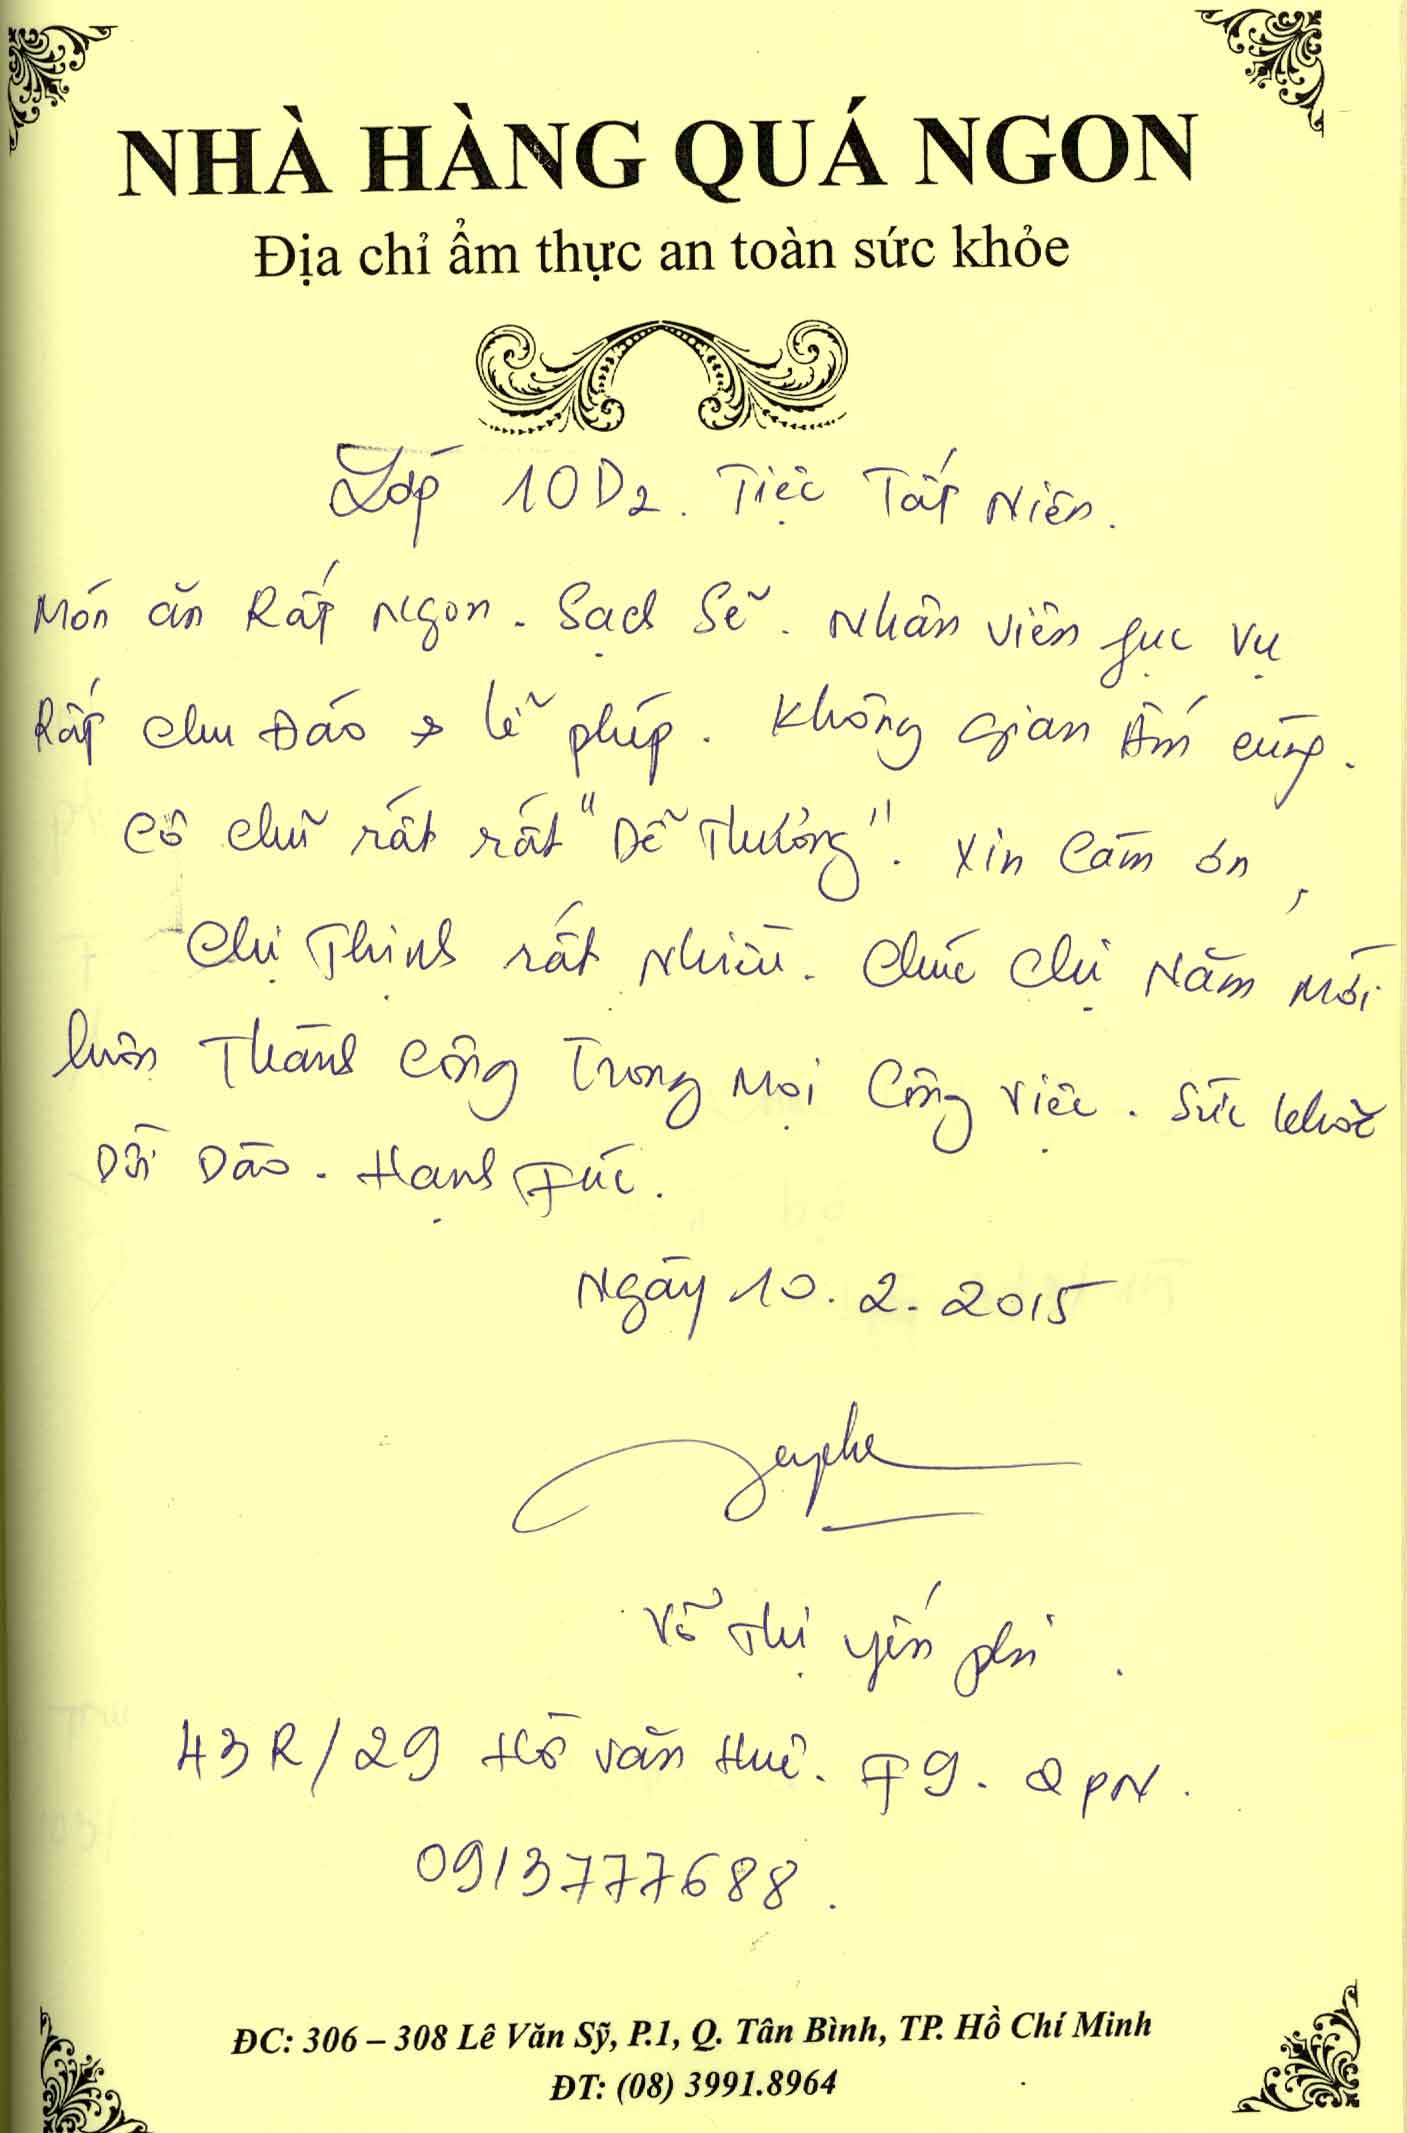 NHÀ HÀNG QUÁ NGON
Địa chỉ ẩm thực an toàn sức khỏe
Lớp 10D2. Tiệc Tất Niên.
Món ăn Rất Ngon. Sạch Sẽ. Nhân viên fục vụ
Rất chu Đáo → lễ phép. Không gian Ấm cúng.
Cô chủ rất rất "Dễ Thương". Xin Cám ơn,
Chị Thịnh rất Nhiều. Chúc Chị Năm Mới
luôn Thành Công Trong Mọi Công Việc. Sức khoẻ
Dồi Dào. Hạnh Fúc.
Ngày 10.2.2015
Võ Thị Yến Phi.
43R/29 Hồ Văn Huê. F9. Q PN.
0913777688.
ĐC: 306 – 308 Lê Văn Sỹ, P.1, Q. Tân Bình, TP. Hồ Chí Minh
ĐT: (08) 3991.8964